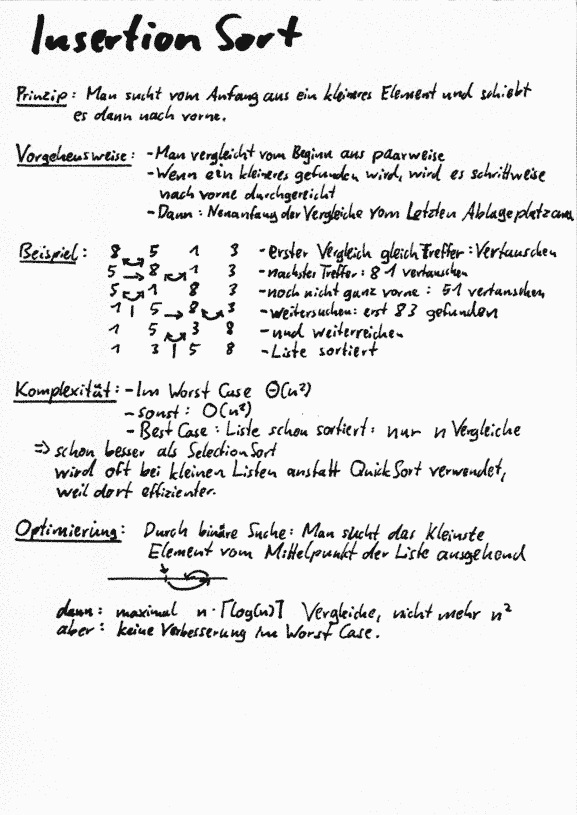 Insertion Sort
Prinzip: Man sucht vom Anfang aus ein kleineres Element und schiebt
es dann nach vorne.
Vorgehensweise: - Man vergleicht vom Beginn aus paarweise
- Wenn ein kleineres gefunden wird, wird es schrittweise
nach vorne durchgereicht
- Dann: Neuanfang der Vergleiche vom Letzten Ablageplatz aus
Beispiel: 8 5 1 3 - erster Vergleich gleich Treffer: Vertauschen
5 8 1 3 - nächster Treffer: 8 1 vertauschen
5 1 8 3 - noch nicht ganz vorne: 5 1 vertauschen
1 | 5 8 3 - weitersuchen: erst 8 3 gefunden
1 5 3 8 - und weiterreichen
1 3 | 5 8 - Liste sortiert
Komplexität: - Im Worst Case Θ(n²)
- sonst: O(n²)
- Best Case: Liste schon sortiert: nur n Vergleiche
⇒ schon besser als SelectionSort
wird oft bei kleinen Listen anstatt QuickSort verwendet,
weil dort effizienter.
Optimierung: Durch binäre Suche: Man sucht das Kleinste
Element vom Mittelpunkt der Liste ausgehend
dann: maximal n·⌈log(n)⌉ Vergleiche, nicht mehr n²
aber: keine Verbesserung im Worst Case.